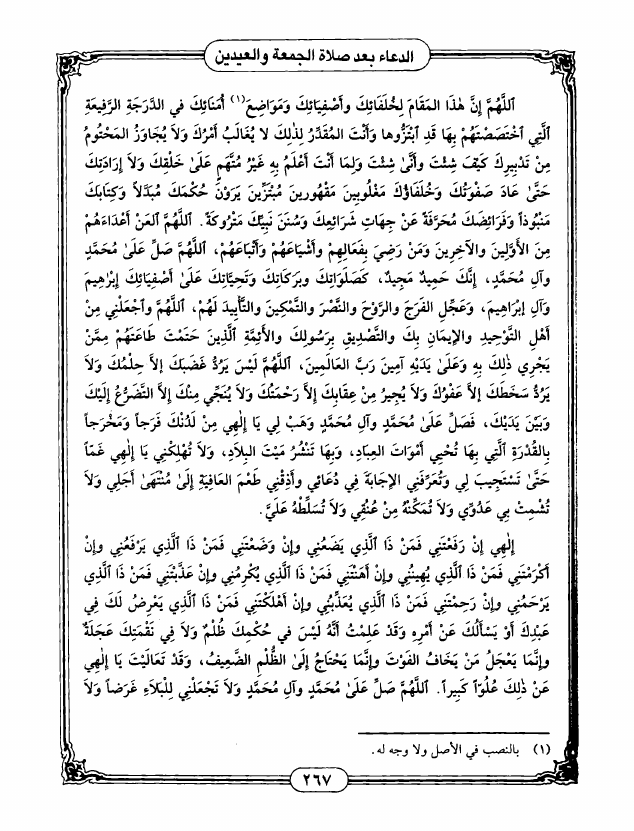 الدعاء بعد صلاة الجمعة والعيدين
اَللَّهُمَّ إِنَّ هٰذَا المَقَامَ لِخُلَفَائِكَ وأَصْفِيَائِكَ وَمَوَاضِعَ(١) أُمَنَائِكَ في الدَّرَجَةِ الرَّفِيعَةِ
الَّتِي اخْتَصَصْتَهُمْ بِهَا قَدِ ابْتَزُّوها وَأَنْتَ المُقَدِّرُ لِذٰلِكَ لا يُغَالَبُ أَمْرُكَ وَلاَ يُجَاوَزُ المَحْتُومُ
مِنْ تَدْبِيرِكَ كَيْفَ شِئْتَ وأَنَّىٰ شِئْتَ وَلِمَا أَنْتَ أَعْلَمُ بِهِ غَيْرُ مُتَّهَمٍ عَلَىٰ خَلْقِكَ وَلاَ لإِرَادَتِكَ
حَتَّىٰ عَادَ صَفْوَتُكَ وَخُلَفَاؤُكَ مَغْلُوبِينَ مَقْهُورِينَ مُبْتَزِّينَ يَرَوْنَ حُكْمَكَ مُبَدَّلاً وَكِتَابَكَ
مَنْبُوذاً وَفَرَائِضَكَ مُحَرَّفَةً عَنْ جِهَاتِ شَرَائِعِكَ وَسُنَنَ نَبِيِّكَ مَتْرُوكَةً. اَللَّهُمَّ الْعَنْ أَعْدَاءَهُمْ
مِنَ الأَوَّلِينَ والآخِرِينَ وَمَنْ رَضِيَ بِفَعَالِهِمْ وأَشْيَاعَهُمْ وَأَتْبَاعَهُمْ، اَللَّهُمَّ صَلِّ عَلَىٰ مُحَمَّدٍ
وآلِ مُحَمَّدٍ، إِنَّكَ حَمِيدٌ مَجِيدٌ، كَصَلَوَاتِكَ وبَرَكَاتِكَ وَتَحِيَّاتِكَ عَلَىٰ أَصْفِيَائِكَ إِبْرٰهِيمَ
وَآلِ إِبْرَاهِيمَ، وَعَجِّلِ الفَرَجَ والرَّوْحَ والنَّصْرَ والتَّمْكِينَ والتَّأْيِيدَ لَهُمْ، اَللَّهُمَّ واجْعَلْنِي مِنْ
أَهْلِ التَّوْحِيدِ والإِيمَانِ بِكَ والتَّصْدِيقِ بِرَسُولِكَ والأَئِمَّةِ الَّذِينَ حَتَمْتَ طَاعَتَهُمْ مِمَّنْ
يَجْرِي ذٰلِكَ بِهِ وَعَلَىٰ يَدَيْهِ آمِينَ رَبَّ العَالَمِينَ، اَللَّهُمَّ لَيْسَ يَرُدُّ غَضَبَكَ إلاَّ حِلْمُكَ وَلاَ
يَرُدُّ سَخَطَكَ إلاَّ عَفْوُكَ وَلاَ يُجِيرُ مِنْ عِقَابِكَ إلاَّ رَحْمَتُكَ وَلاَ يُنَجِّي مِنْكَ إلاَّ التَّضَرُّعُ إِلَيْكَ
وَبَيْنَ يَدَيْكَ، فَصَلِّ عَلَىٰ مُحَمَّدٍ وآلِ مُحَمَّدٍ وَهَبْ لِي يَا إِلٰهِي مِنْ لَدُنْكَ فَرَجاً وَمَخْرَجاً
بِالقُدْرَةِ الَّتِي بِهَا تُحْيِي أَمْوَاتَ العِبَادِ، وَبِهَا تَنْشُرُ مَيْتَ البِلاَدِ، وَلاَ تُهْلِكْنِي يَا إِلٰهِي غَمّاً
حَتَّىٰ تَسْتَجِيبَ لِي وَتُعَرِّفَنِي الإِجَابَةَ فِي دُعَائِي وَأَذِقْنِي طَعْمَ العَافِيَةِ إِلَىٰ مُنْتَهَىٰ أَجَلِي وَلاَ
تُشْمِتْ بِي عَدُوِّي وَلاَ تُمَكِّنْهُ مِنْ عُنُقِي وَلاَ تُسَلِّطْهُ عَلَيَّ.
إِلٰهِي إِنْ رَفَعْتَنِي فَمَنْ ذَا الَّذِي يَضَعُنِي وإِنْ وَضَعْتَنِي فَمَنْ ذَا الَّذِي يَرْفَعُنِي وإِنْ
أَكْرَمْتَنِي فَمَنْ ذَا الَّذِي يُهِينُنِي وإِنْ أَهَنْتَنِي فَمَنْ ذَا الَّذِي يُكْرِمُنِي وإِنْ عَذَّبْتَنِي فَمَنْ ذَا الَّذِي
يَرْحَمُنِي وإِنْ رَحِمْتَنِي فَمَنْ ذَا الَّذِي يُعَذِّبُنِي وإِنْ أَهْلَكْتَنِي فَمَنْ ذَا الَّذِي يَعْرِضُ لَكَ فِي
عَبْدِكَ أَوْ يَسْأَلُكَ عَنْ أَمْرِهِ وَقَدْ عَلِمْتُ أَنَّهُ لَيْسَ في حُكْمِكَ ظُلْمٌ وَلاَ فِي نَقْمَتِكَ عَجَلَةٌ
وإِنَّمَا يَعْجَلُ مَنْ يَخَافُ الفَوْتَ وإِنَّمَا يَحْتَاجُ إِلَىٰ الظُّلْمِ الضَّعِيفُ، وَقَدْ تَعَالَيْتَ يَا إِلٰهِي
عَنْ ذٰلِكَ عُلُوّاً كَبِيراً. اَللَّهُمَّ صَلِّ عَلَىٰ مُحَمَّدٍ وآلِ مُحَمَّدٍ وَلاَ تَجْعَلْنِي لِلْبَلاَءِ غَرَضاً وَلاَ
(١) بالنصب في الأصل ولا وجه له.
٢٦٧